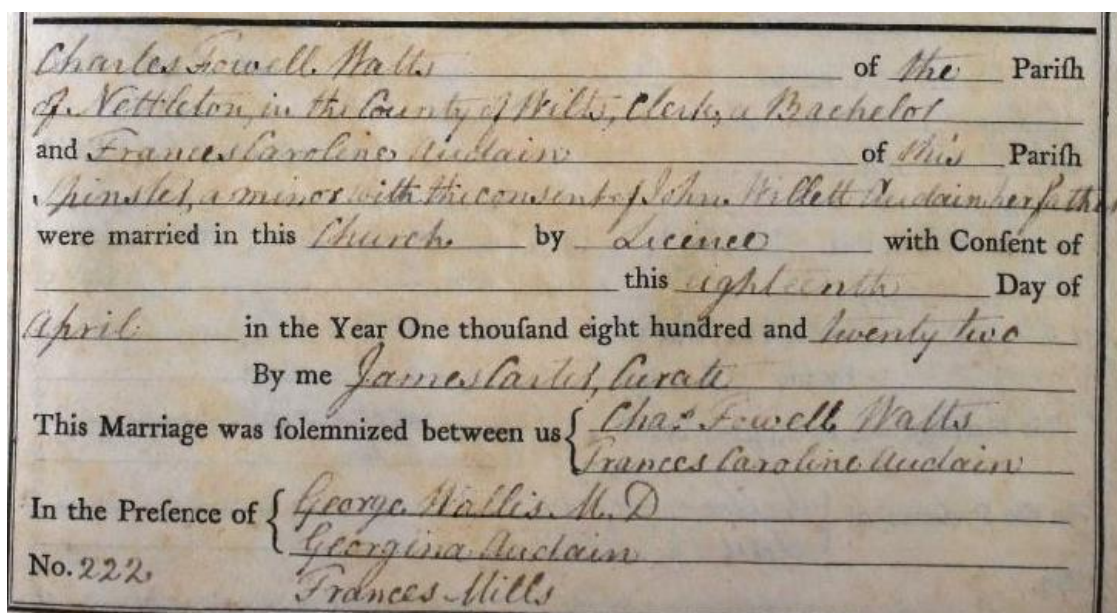 Charles Fowell Watts of the Pariſh
of Nettleton, in the County of Wilts, Clerk, a Bachelor
and Frances Caroline Audain of this Pariſh
Spinster, a minor with the consent of John Willett Audain her father
were married in this Church by Licence with Conſent of
this eighteenth Day of
April in the Year One thouſand eight hundred and twenty two
By me James Carter, Curate
This Marriage was ſolemnized between us { Chaˢ Fowell Watts
Frances Caroline Audain
In the Preſence of { George Wallis M.D
Georgina Audain
No. 222. Frances Mills